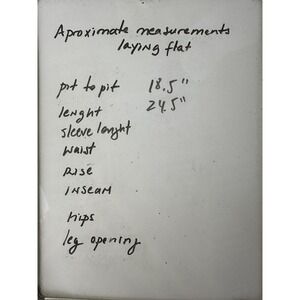 Aproximate measurements
laying flat
pit to pit 18.5"
lenght 24.5"
sleeve lenght
waist
Rise
Inseam
Hips
leg opening